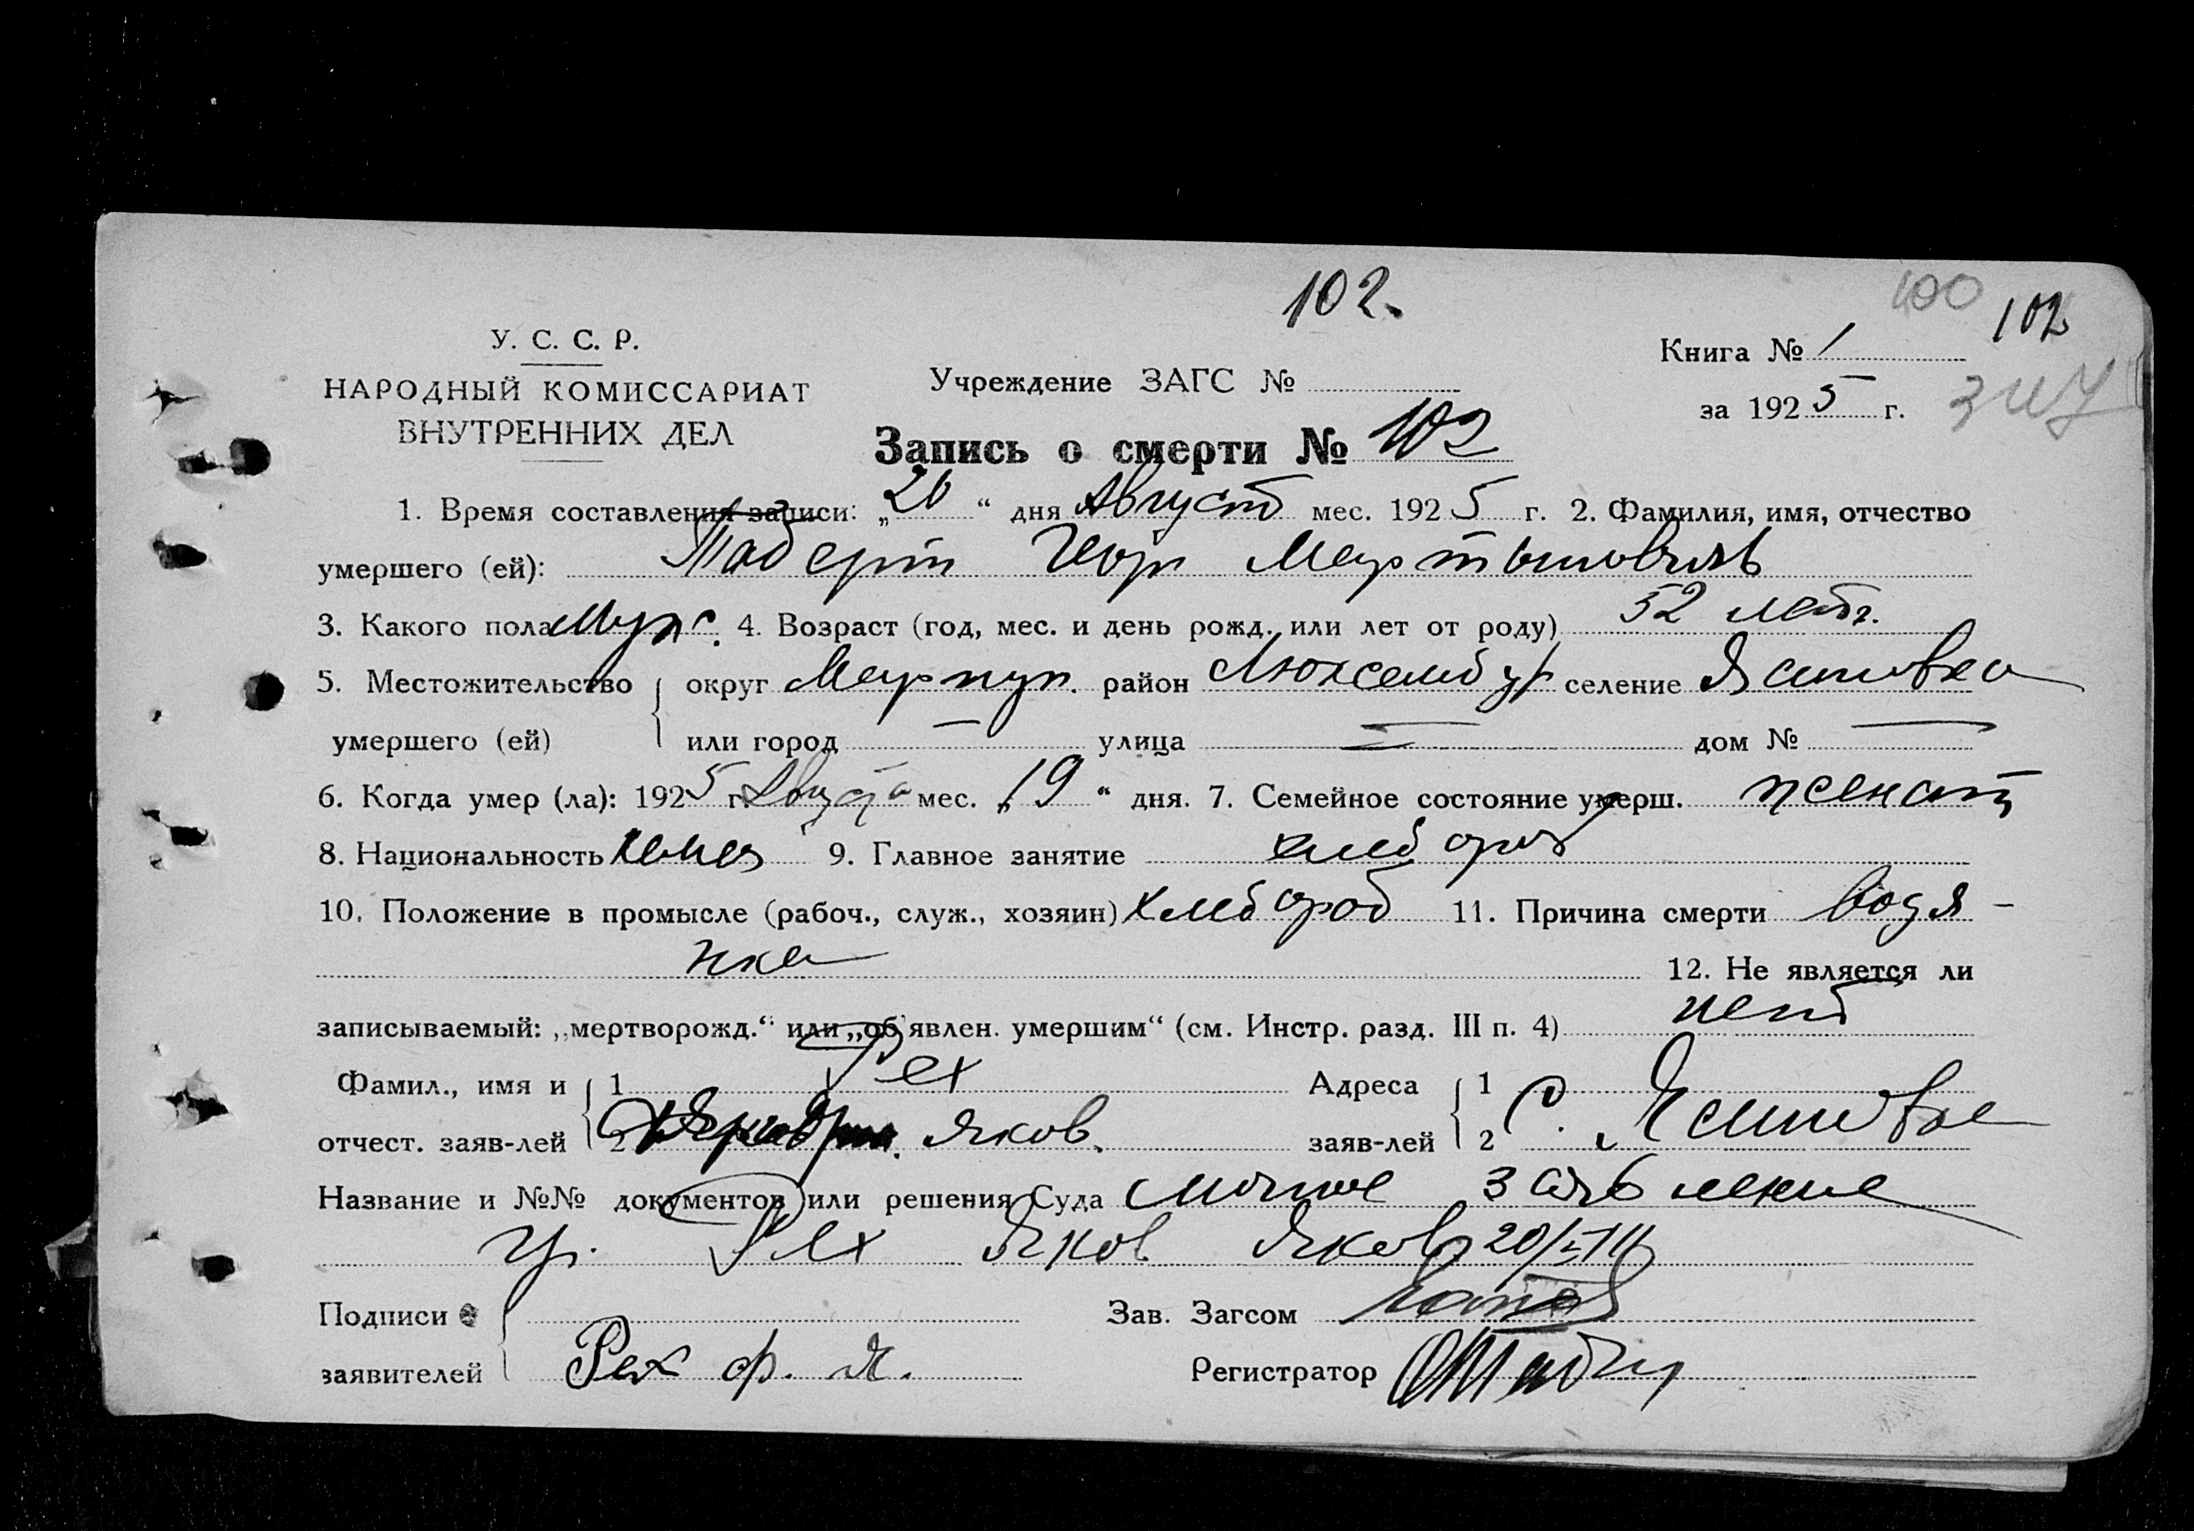 102.
100 102
У. С. С. Р.
НАРОДНЫЙ КОМИССАРИАТ
ВНУТРЕННИХ ДЕЛ
Учреждение ЗАГС №
Книга № 1
за 1925 г.
Запись о смерти № 102
1. Время составления записи: „20“ дня Август мес. 1925 г. 2. Фамилия, имя, отчество
умершего (ей): Таберт Геор Мартынович
3. Какого пола Муж. 4. Возраст (год, мес. и день рожд. или лет от роду) 52 лет
5. Местожительство округ Мариуп. район Люксембур селение Ясиновка
умершего (ей) или город — улица — дом № —
6. Когда умер (ла): 1925 г. Августа мес. „19“ дня. 7. Семейное состояние умерш. женат
8. Национальность немец 9. Главное занятие хлебороб
10. Положение в промысле (рабоч., служ., хозяин) хлебороб 11. Причина смерти водя-
нка 12. Не является ли
записываемый: „мертворожд.“ или „об'явлен. умершим“ (см. Инстр. разд. III п. 4) нет
Фамил., имя и 1 Рех Адреса 1
отчест. заяв-лей 2 Яков. заяв-лей 2 с. Ясиновка
Название и №№ документов или решения Суда Личное заявление
гр. Рех Яков Яков 20/VIII
Подписи Зав. Загсом
заявителей Рех ф. я. Регистратор